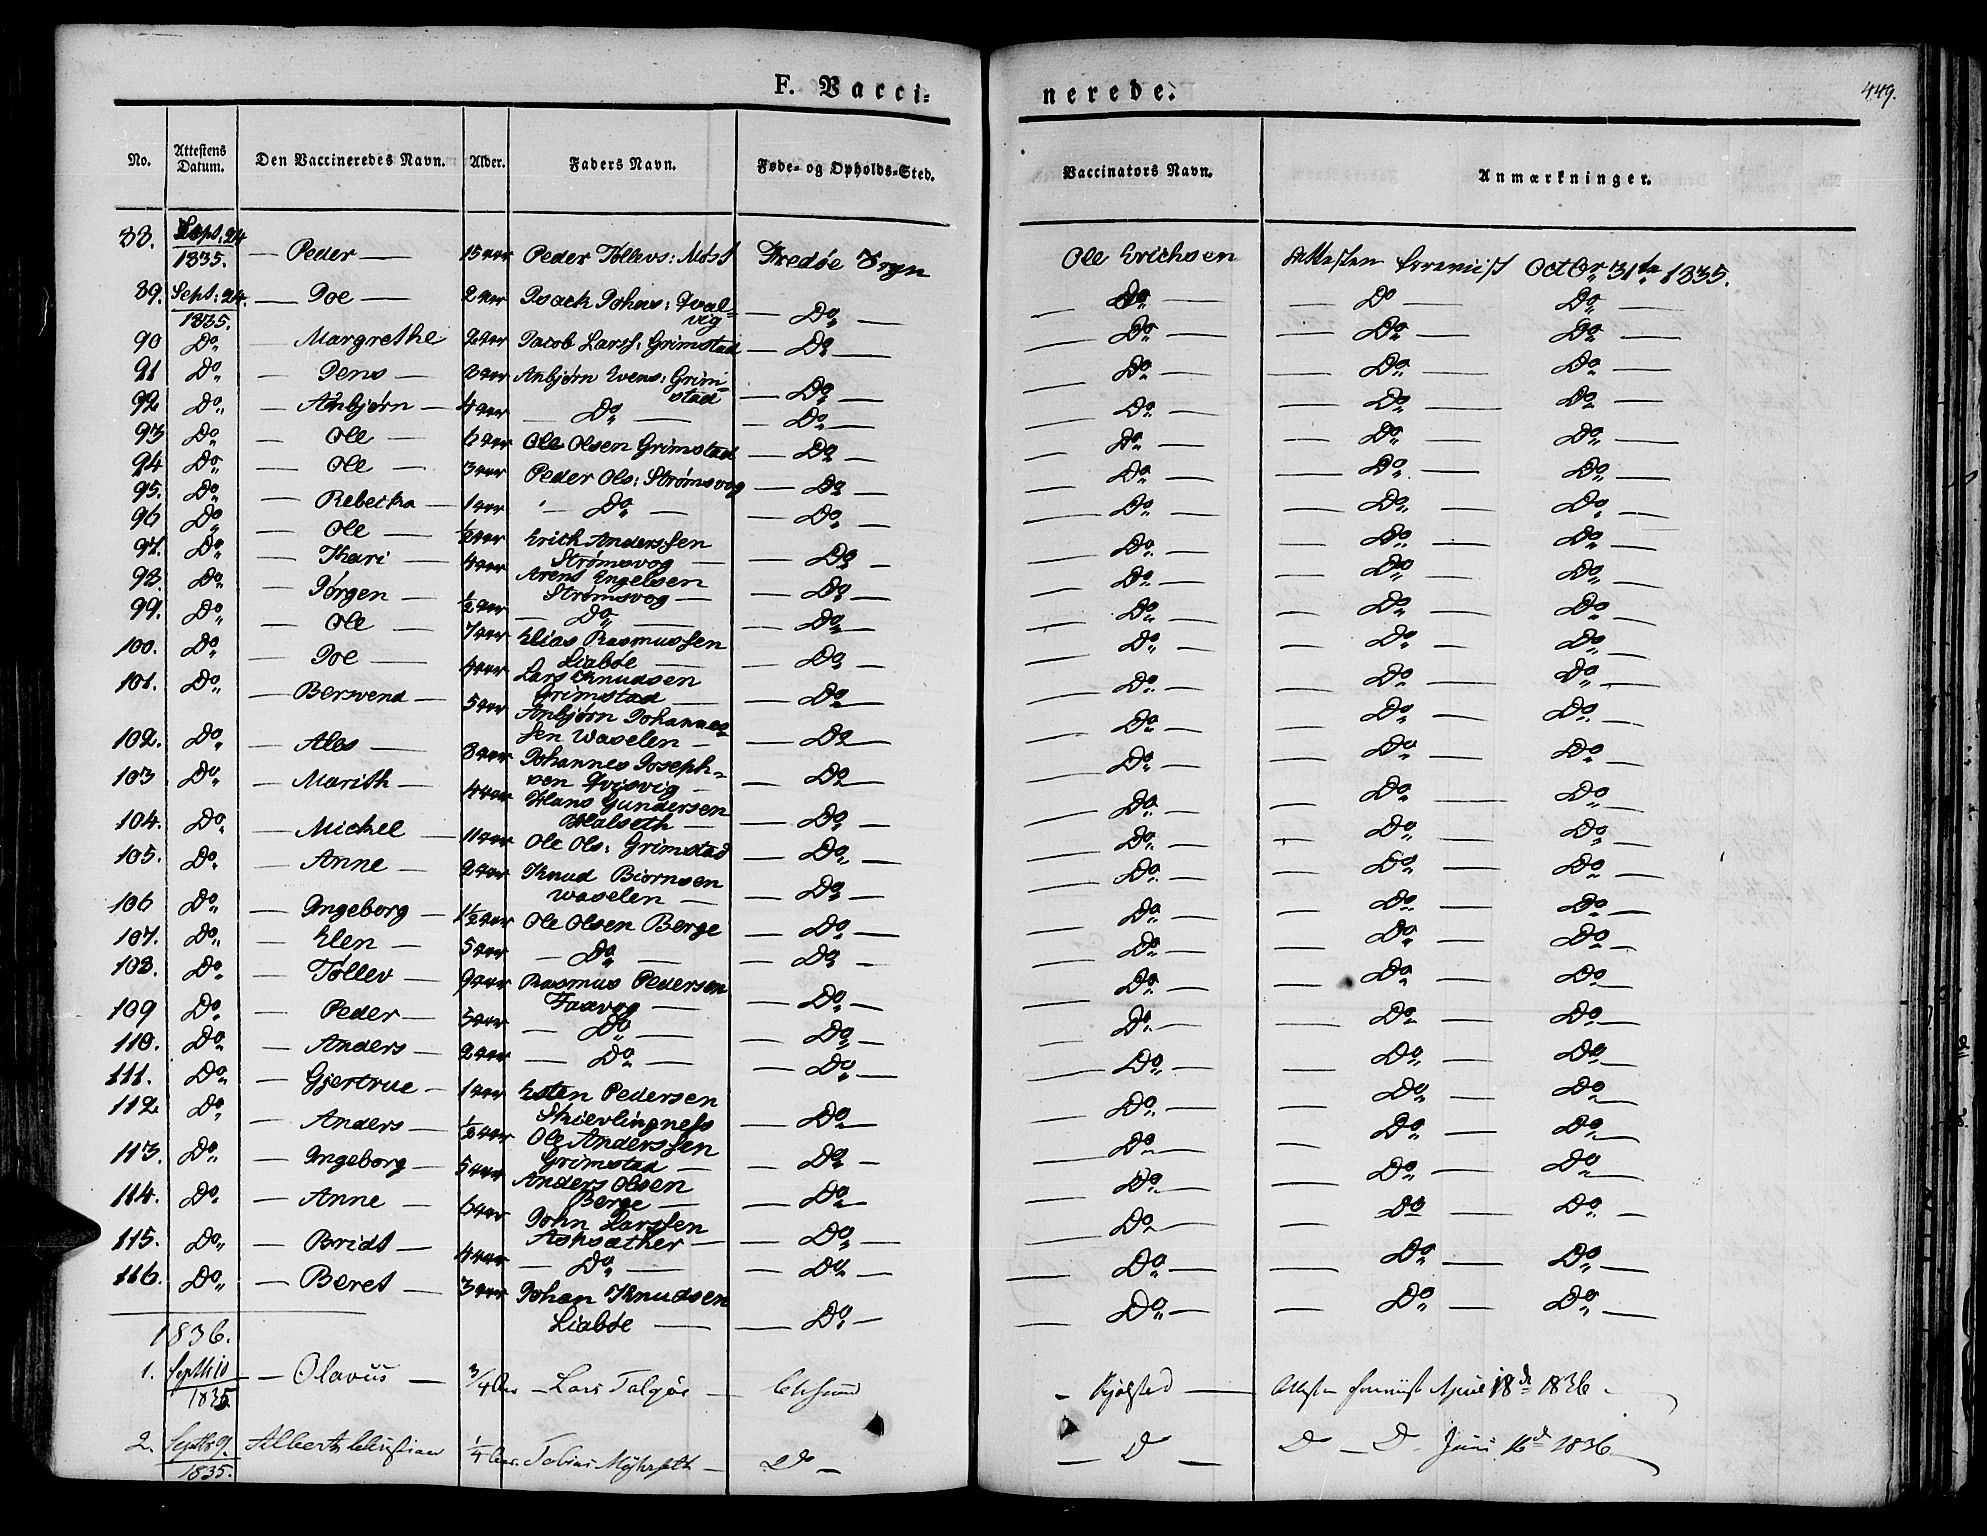 F. Vacci-
nerede.
449.
No. Attestens Datum. Den Vaccineredes Navn. Alder. Faders Navn. Føde- og Opholds-Sted. Vaccinators Navn. Anmærkninger.
88. Sept: 24 1835. — Peder — 15 aar Peder Tollevs: Møst Fredøe Sogn Ole Erichsen Attesten foreviist Octbr 31te 1835.
89. Sept: 24. 1835. — Joe — 2 aar Isack Johns: Qval-
vig — Do — — Do — — Do — Do —
90 Do — Margrethe 2 aar Jacob Larss: Grimstad — Do — — Do — — Do — Do —
91 Do — Jens — 8 aar Anbjørn Evens: Grim-
stad — Do — — Do — — Do — Do —
92 Do — Anbjørn — 4 aar — Do — — Do — — Do — — Do — Do —
93 Do — Ole — 6 aar Ole Olsen Grimstad — Do — — Do — — Do — Do —
94 Do — Ole — 3 aar Peder Ols: Strømsvog — Do — — Do — — Do — Do —
95. Do — Rebecka — 1 aar — Do — — Do — — Do — — Do — Do —
96 Do — Ole — ½ aar Erich Anderssen
Strømsvog — — Do — — Do — — Do — Do —
97. Do — Kari — 4 aar Arens Engelsen
Strømsvog — — Do — — Do — — Do — Do —
98. Do — Jørgen — ½ aar — Do — — Do — — Do — — Do — Do —
99. Do — Ole — 7 aar Elias Rasmussen
Liabøe — — Do — — Do — — Do — Do —
100. Do — Joe — 4 aar Lars Knudsen
Grimstad — — Do — — Do — — Do — Do —
101. Do — Berwend — 5 aar Anbjørn Johannes-
sen Waselen — — Do — — Do — — Do — Do —
102. Do — Ales — 8 aar Johannes Joseph-
sen Qvisvig — — Do — — Do — — Do — Do —
103 Do — Marith — 4 aar Hans Gundersen
Halseth — — Do — — Do — — Do — Do —
104. Do — Mickel — 11 aar Ole Ols: Grimstad — Do — — Do — — Do — Do —
105. Do — Anne — 2 aar Knud Biørnsen
Waselen — — Do — — Do — — Do — Do —
106 Do — Ingeborg — 1½ aar Ole Olsen Berge — Do — — Do — — Do — Do —
107. Do — Elen — 5 aar — Do — — Do — — Do — — Do — Do —
108. Do — Tollev — 9 aar Rasmus Pedersen
Faxvog — — Do — — Do — — Do — Do —
109 Do — Peder — 5 aar — Do — — Do — — Do — — Do — Do —
110. Do — Anders — 2 aar — Do — — Do — — Do — — Do — Do —
111. Do — Gjertrue — 1 aar Esten Pedersen
Skievlingness — Do — — Do — — Do — Do —
112 Do — Anders — ½ aar Ole Anderssen
Grimstad — — Do — — Do — — Do — Do —
113. Do — Ingeborg — 5 aar Anders Olsen
Berge — — Do — — Do — — Do — Do —
114. Do — Anne — 6 aar John Larssen
Aspsæther — — Do — — Do — — Do — Do —
115. Do — Bridt — 4 aar — Do — — Do — — Do — — Do — Do —
116. Do — Beret — 3 aar Johan Knudsen
Liabøe — — Do — — Do — — Do — Do —
1836.
1. Septbr 10 1835 — Olavus — ¾ Aar — Lars Talgøe — Chsund — — Attesten foreviist April 18de 1836.
2. Septbr 9. 1835. Albert Christian ¼ Aar. Tobias Myhrseth — Do — — D — D — D. Juni 16de 1836.